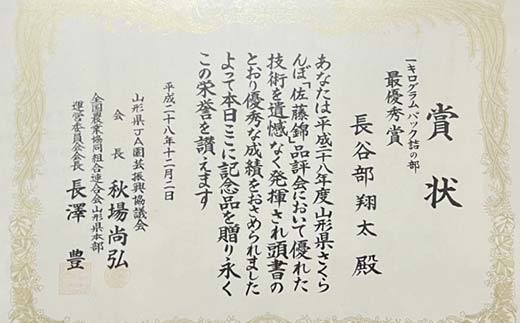 賞状
一キログラムパック詰の部
最優秀賞
長谷部翔太殿
あなたは平成二十八年度山形県さくら
んぼ「佐藤錦」品評会において優れた
技術を遺憾なく発揮され頭書の
とおり優秀な成績をおさめられました
よって本日ここに記念品を贈り永く
この栄誉を讃えます
平成二十八年十二月二日
山形県JA園芸振興協議会
会長 秋場尚弘
全国農業協同組合連合会山形県本部
運営委員会会長 長澤豊